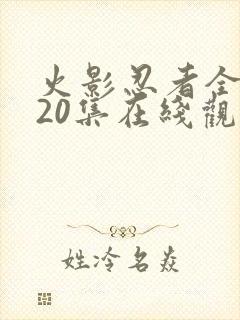 火影忍者全
20集在綫觀
姓冷名焱